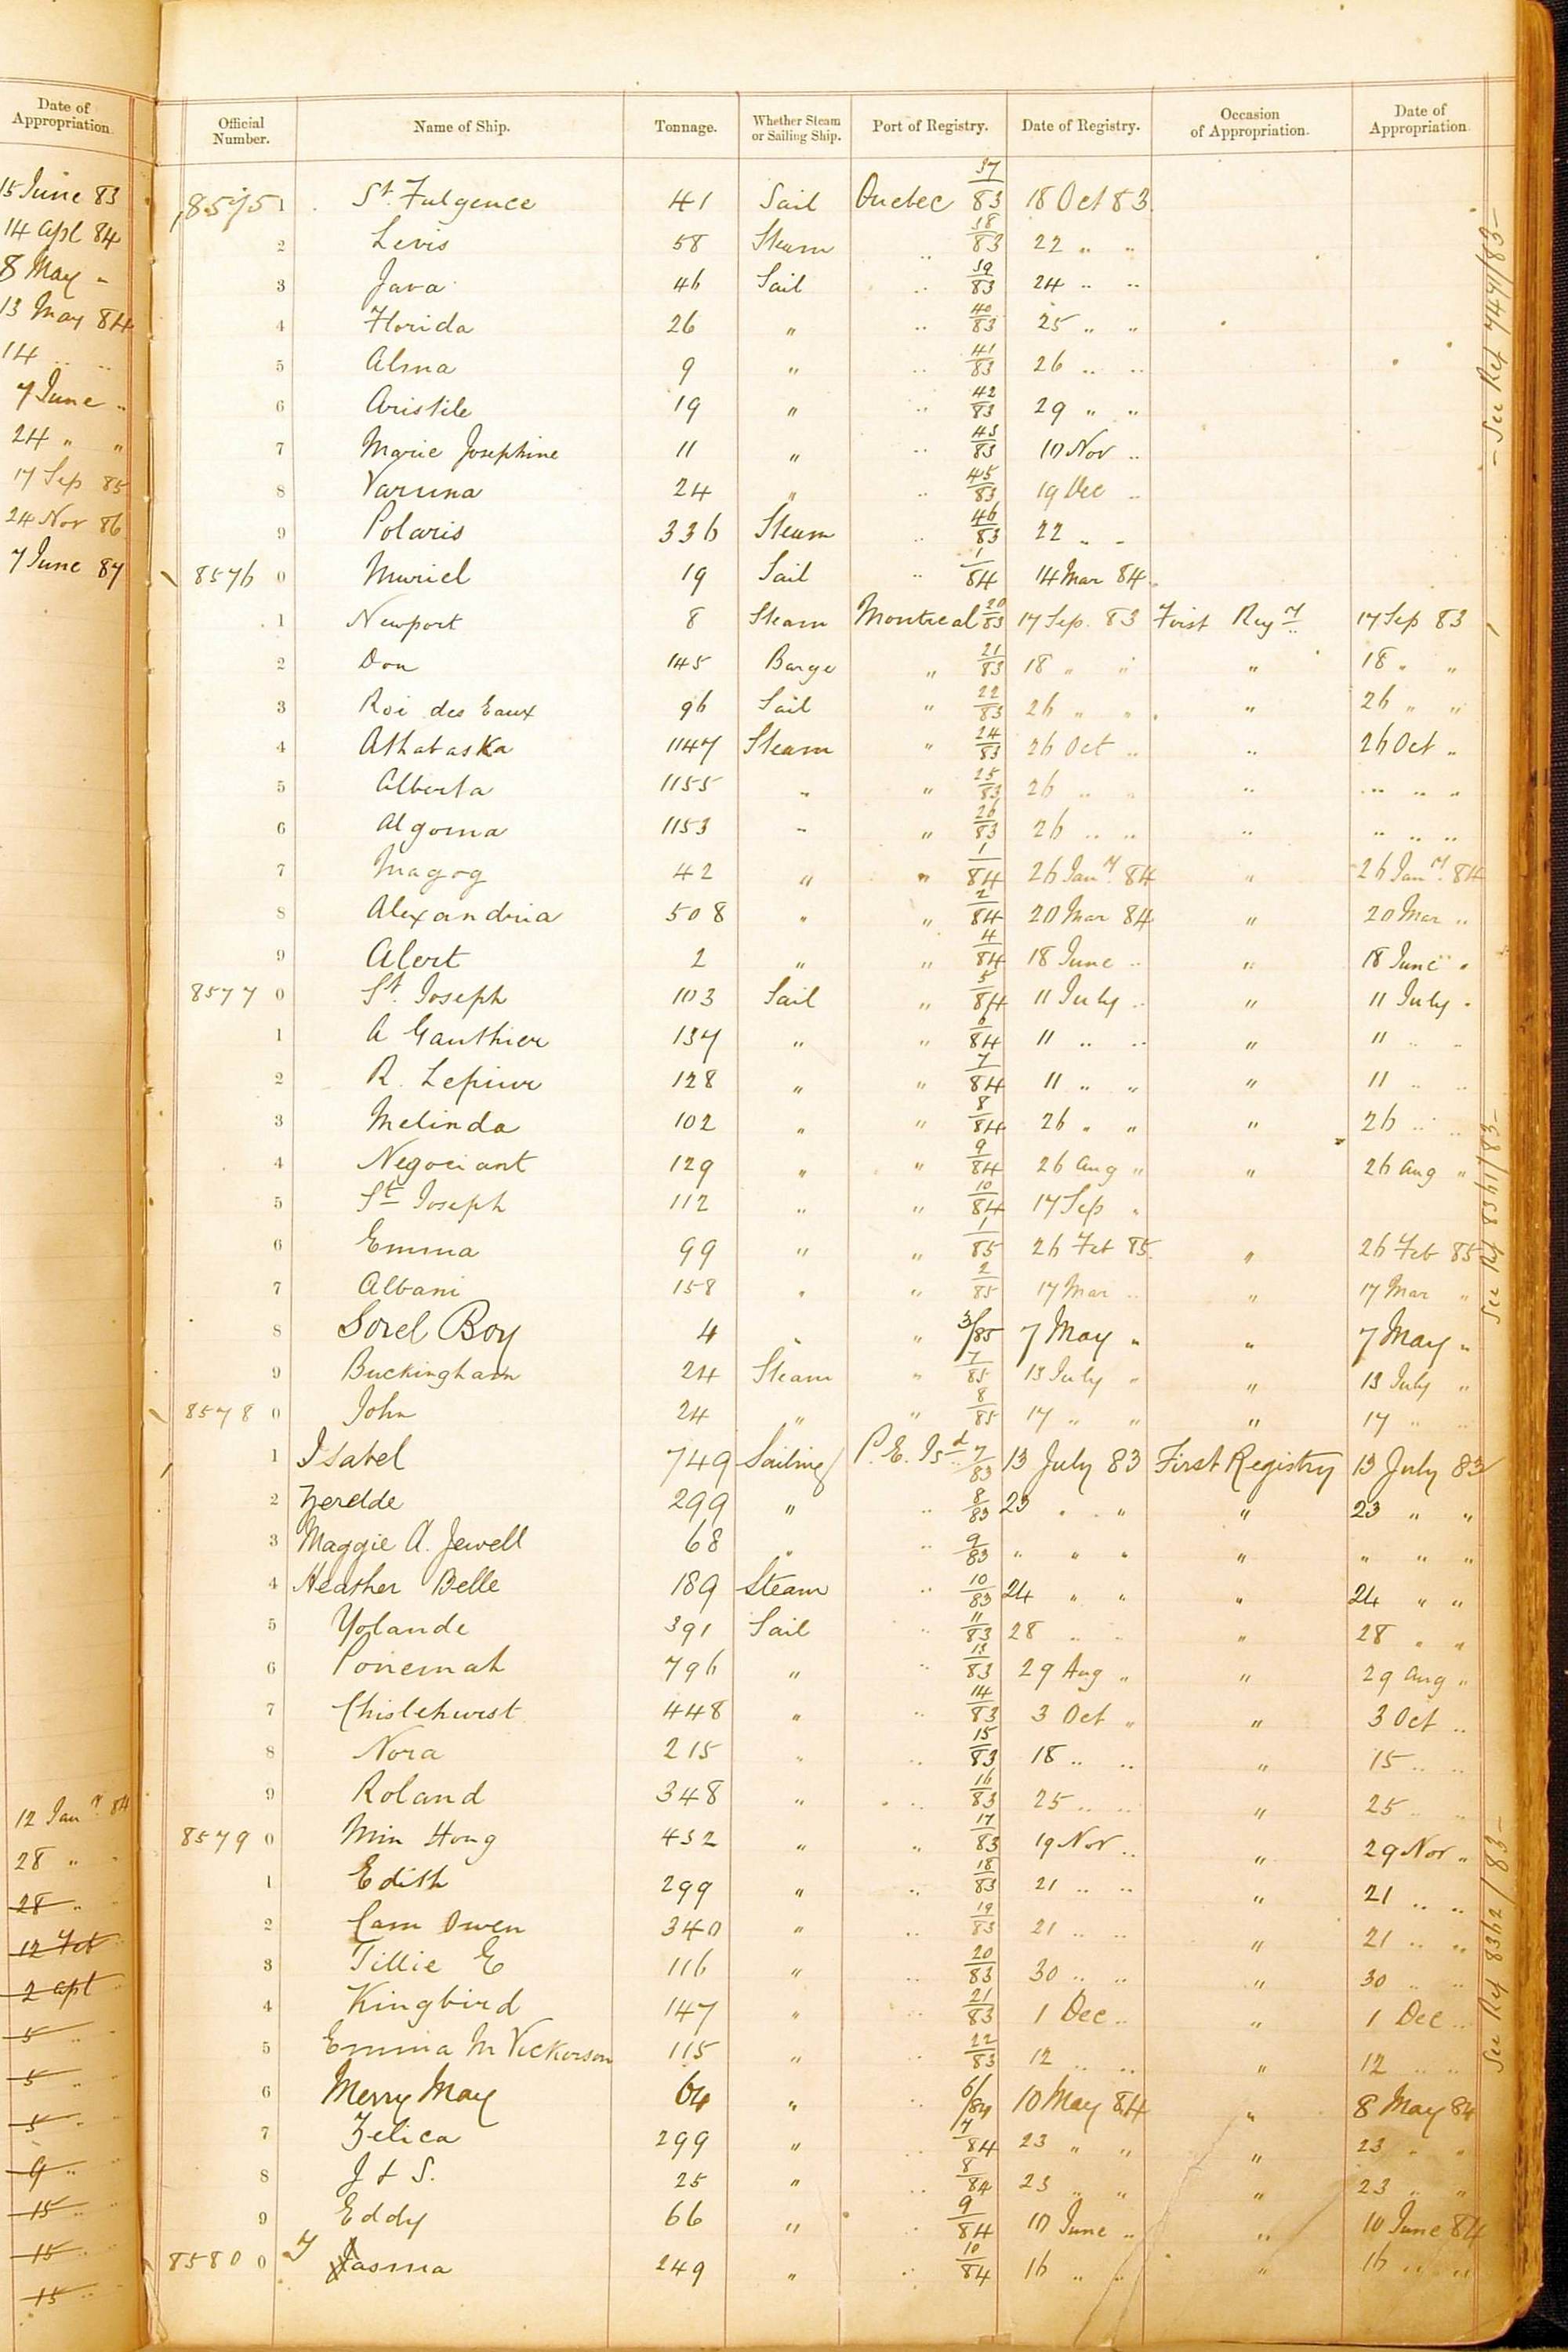 Date of
Appropriation.
15 June 83
14 apl 84
8 May "
13 May 84
14 " "
7 June "
24 " "
17 Sep 85
24 Nov 86
7 June 87
12 Jany 84
28 " "
28 "
12 Feb "
2 apl "
5 " "
5 " "
5 " "
9 " "
15 "
15 "
15 "
Official Number. Name of Ship. Tonnage. Whether Steam or Sailing Ship. Port of Registry. Date of Registry. Occasion of Appropriation. Date of Appropriation
85751 St. Fulgence 41 Sail Quebec 37/83 18 Oct 83
2 Levis 58 Steam " 38/83 22 " "
3 Java 46 Sail " 39/83 24 " "
4 Florida 26 " " 40/83 25 " "
5 Alma 9 " " 41/83 26 " "
6 Aristile 19 " " 42/83 29 " "
7 Marie Josephine 11 " " 43/83 10 Nov "
8 Varuna 24 " " 45/83 19 Dec "
9 Polaris 336 Steam " 46/83 22 " "
8576 0 Muriel 19 Sail " 1/84 14 Mar 84
1 Newport 8 Steam Montreal 20/83 17 Sep. 83 First Regy 17 Sep 83
2 Don 145 Barge " 21/83 18 " " " 18 " "
3 Roi des Eaux 96 Sail " 22/83 26 " " " 26 " "
4 Athabaska 1147 Steam " 24/83 26 Oct " " 26 Oct "
5 Alberta 1155 " " 25/83 26 " " " " " "
6 Algoma 1153 " " 26/83 26 " " " " " "
7 Magog 42 " " 1/84 26 Jany. 84 " 26 Jany. 84
8 Alexandria 508 " " 2/84 20 Mar 84 " 20 Mar "
9 Alert 2 " " 4/84 18 June " " 18 June "
8577 0 St. Joseph 103 Sail " 5/84 11 July " " 11 July "
1 A Gauthier 137 " " 6/84 11 " " " 11 " "
2 R. Lepine 128 " " 7/84 11 " " " 11 " "
3 Melinda 102 " " 8/84 26 " " " 26 " "
4 Negociant 129 " " 9/84 26 Aug " " 26 Aug "
5 St Joseph 112 " " 10/84 17 Sep "
6 Emma 99 " " 1/85 26 Feb 85 " 26 Feb 85
7 Albani 158 " " 2/85 17 Mar " " 17 Mar "
8 Sorel Boy 4 " " 3/85 7 May " " 7 May "
9 Buckingham 24 Steam " 7/85 13 July " " 13 July "
8578 0 John 24 " " 8/85 17 " " " 17 " "
1 Isabel 749 Sailing P. E. Isd 7/83 13 July 83 First Registry 13 July 83
2 Zeredde 299 " " 8/83 23 " " " 23 " "
3 Maggie A. Jewell 68 " " 9/83 " " " " " " "
4 Heather Belle 189 Steam " 10/83 24 " " " 24 " "
5 Yolande 391 Sail " 11/83 28 " " " 28 " "
6 Ponemah 796 " " 13/83 29 Aug " " 29 Aug "
7 Chislehurst 448 " " 14/83 3 Oct " " 3 Oct "
8 Nora 215 " " 15/83 18 " " " 15 " "
9 Roland 348 " " 16/83 25 " " " 25 " "
8579 0 Min Hong 432 " " 17/83 19 Nov " " 29 Nov "
1 Edith 299 " " 18/83 21 " " " 21 " "
2 Cam Owen 340 " " 19/83 21 " " " 21 " "
3 Tillie E 116 " " 20/83 30 " " " 30 " "
4 Kingbird 147 " " 21/83 1 Dec " " 1 Dec "
5 Emma M Vickerson 115 " " 22/83 12 " " " 12 " "
6 Merry May 64 " " 6/84 10 May 84 " 8 May 84
7 Zelica 299 " " 7/84 23 " " " 23 " "
8 J & S. 25 " " 8/84 23 " " " 23 " "
9 Eddy 66 " " 9/84 10 June " " 10 June 84
8580 0 Y Jasma 249 " " 10/84 16 " " " 16 " "
- See Ref 747/83 -
See Ref 8361/83 -
See Ref 8362/83 -